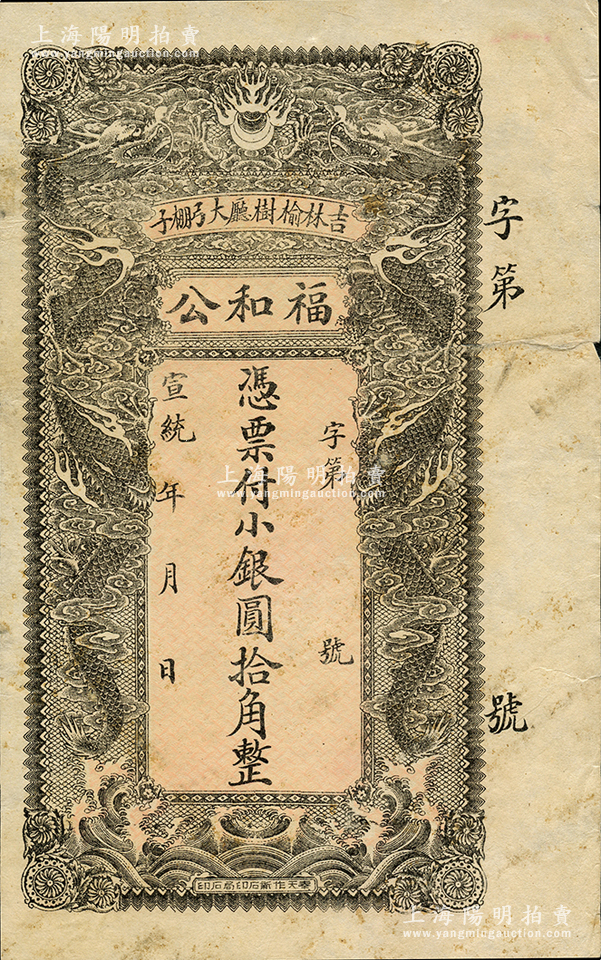 上海陽明拍賣
www.yangmingauction.com
吉林榆樹廳大弓棚子
福和公
字第 號
憑票付小銀圓拾角整
宣統 年 月 日
字第 號
上海陽明拍賣
www.yangmingauction.com
奉天作新石印局石印
上海陽明拍賣
www.yangmingauction.com